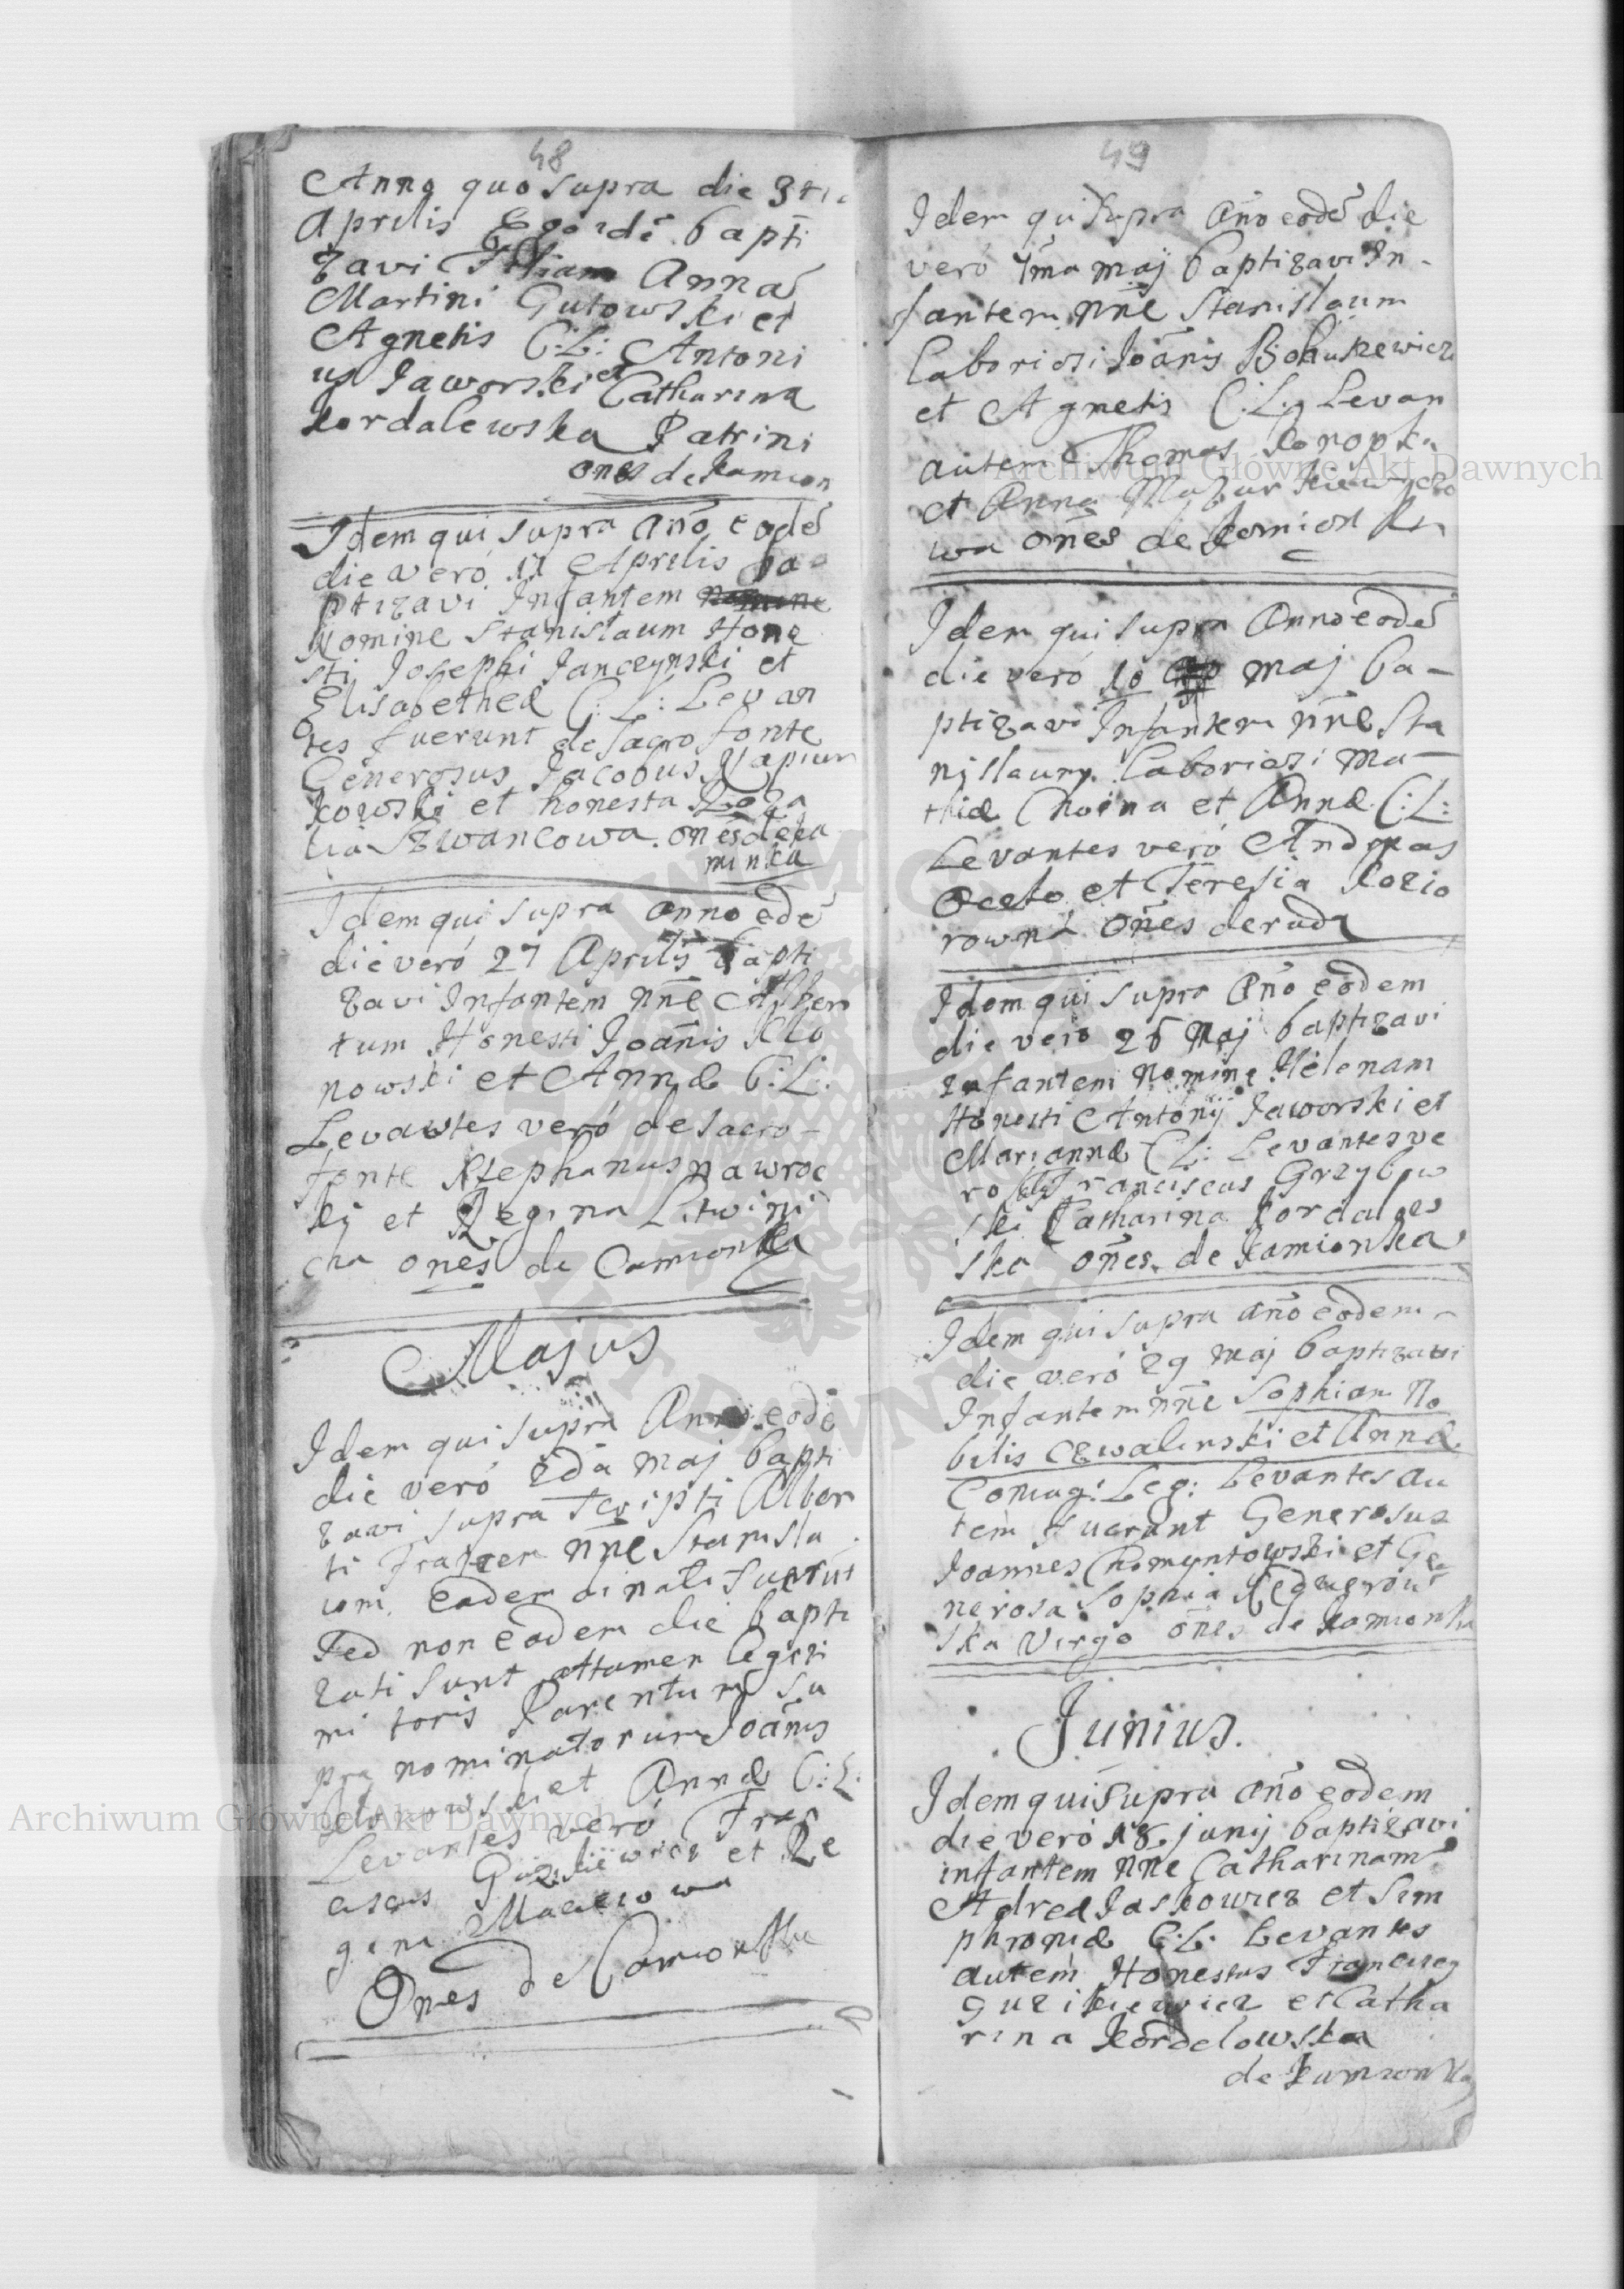 48
Anno quo supra die 3tia
Aprilis Ego idē bapti
zavi Filiam Annā
Martini Gutowski et
Agnetis C:L: Antoni
us Jaworski et Catharina
Kordalewska Patrini
ones de Kamion
Idem qui supra Año eodē
die veró 11 Aprilis ba
ptizavi Infantem
Nomine Stanislaum Hone
sti Josephi Janczynski et
Elisabethea C:L: Levan
tes fuerunt de sacro fonte
Generosus Jacobus Napiur
kowski et honesta Roza
lia Szwancowa. ones de Ka
minka
Idem qui supra Anno eodē
die veró 27 Aprilis bapti
zavi Infantem nñe Alber
tum Honesti Joañis Klo
nowski et Annæ C:L:
Levantes veró de sacro
fonte Stephanus nawroc
ki et Regina Litwini
cha ones de Camionka
Majus
Idem qui supra Anno eodē
die veró 2da Maj bapti
zavi supra scripti Alber
ti Fratrem nñe Stanisla
um. Eadem di nati fuerūt
sed non eadem die bapti
zati sunt attamen legiti
mi toris Parentum su
pra nominatorum Joañis
Klonowski et Annæ C:L:
Levantes veró Fran
ciscus Guzikiewicz et Re
gina
Ones de Camionka
49
Idem qui supra Año eodē die
veró 7ma Maj baptizavi In-
fantem nñe Stanislaum
Laboriosi Joānis Bohuszewicz
et Agnetis C:L: Levan
autem Thomas Konopka
et Anna
wa oñes de Kamion Ka
Idem qui supra Anno eodē
die veró 10 Maj ba-
ptizavi Infantem nñe Sta
nislaum Laboriosi Ma-
thiæ Choina et Annæ C:L:
Levantes veró Andreas
Oceto et Teresia Kozio
rowna oñes de ruda
Idem qui supra Año eodem
die vero 26 Maj baptizavi
Infantem nomine Helenam
Honesti Antonij Jaworski et
Mariannæ C:L: Levantes ve
ro Franciscus Grzybow
ski Catharina Kordalew
ska oñes de Kamionka
Idem qui supra Año eodem
die veró 29 Maj baptizavi
Infantem nñe Sophiam No
bilis Czwalinski et Annæ
Coniug: Leg: Levantes au
tem fuerunt Generosus
Joannes Chomyntowski et Ge
nerosa Sophia
ska Virgo oñes de Kamionka
Junius.
Idem qui supra Año eodem
die veró 18 junij baptizavi
infantem nñe Catharinam
Adreæ Jaskowicz et Sim
phroniæ C:L: Levantes
autem Honestus
guzikiewicz et Catha
rina Kordelowska
de Kamionka
Archiwum Główne Akt Dawnych
Archiwum Główne Akt Dawnych